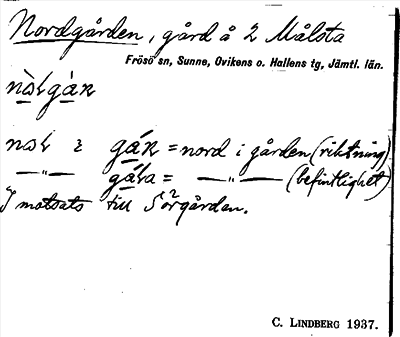 Nordgården, gård å 2 Målsta
Frösö sn, Sunne, Ovikens o. Hallens tg, Jämtl. län.
= nord i gården (riktning)
—„— = —„— (befintlighet)
I motsats till Sörgården.
C. LINDBERG 1937.